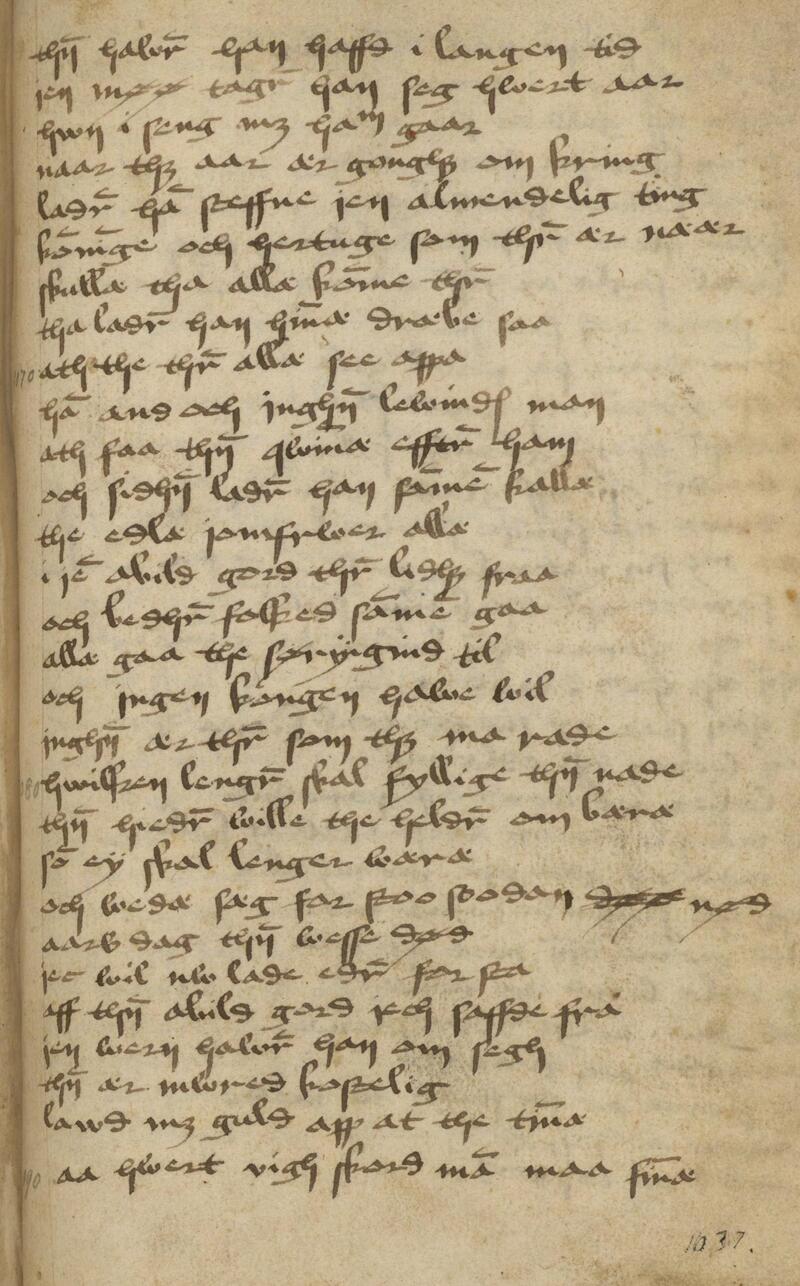 thn̄ hawr̄ han haffd i langen tid
jen møø tagr̄ han seg hwert aar
hwn i seng mꝫ ham gaar
naar thꝫ aar ær gonghꝫ om kring
ladr̄ hā steffne jen almendelig ting
kōnīge och hertuge som thr̄ ær næær
skullæ tha allæ kōme thr̄
tha ladr̄ han hīnæ dræbe saa
170 ath the thr̄ allæ see oppa
hā and och jnghn̄ lewind man
ath faa thn̄ qwinæ efftr̄ ham
och sidhn̄ ladr̄ han sāmē kallæ
the edlæ jomfrwer allæ
i jē abild gord thr̄ lidhꝫ fraa
och bedhr̄ folked sāmē gaa
allæ gaa the sørgind til
och jngen kongen hawe wil
jnghn̄ ær thr̄ som thꝫ ma rade
180 hwilken lengr̄ skal fyllige thn̄ nade
thn̄ hiedr̄ wille the heldr̄ om bæræ
sō ey skal lenger wæræ
och wedæ sæg for stoo sodan nød
aars dag thn̄ wesse død
jec wil nw lade edr̄ for sta
aff thn̄ abild gord jech saffde fra
jen wern hawr̄ han om segh
thn̄ ær mwred kostelig
lawd mꝫ guld opp at the tīnæ
190 aa hwert righ skord mā maa fīnæ
1037.